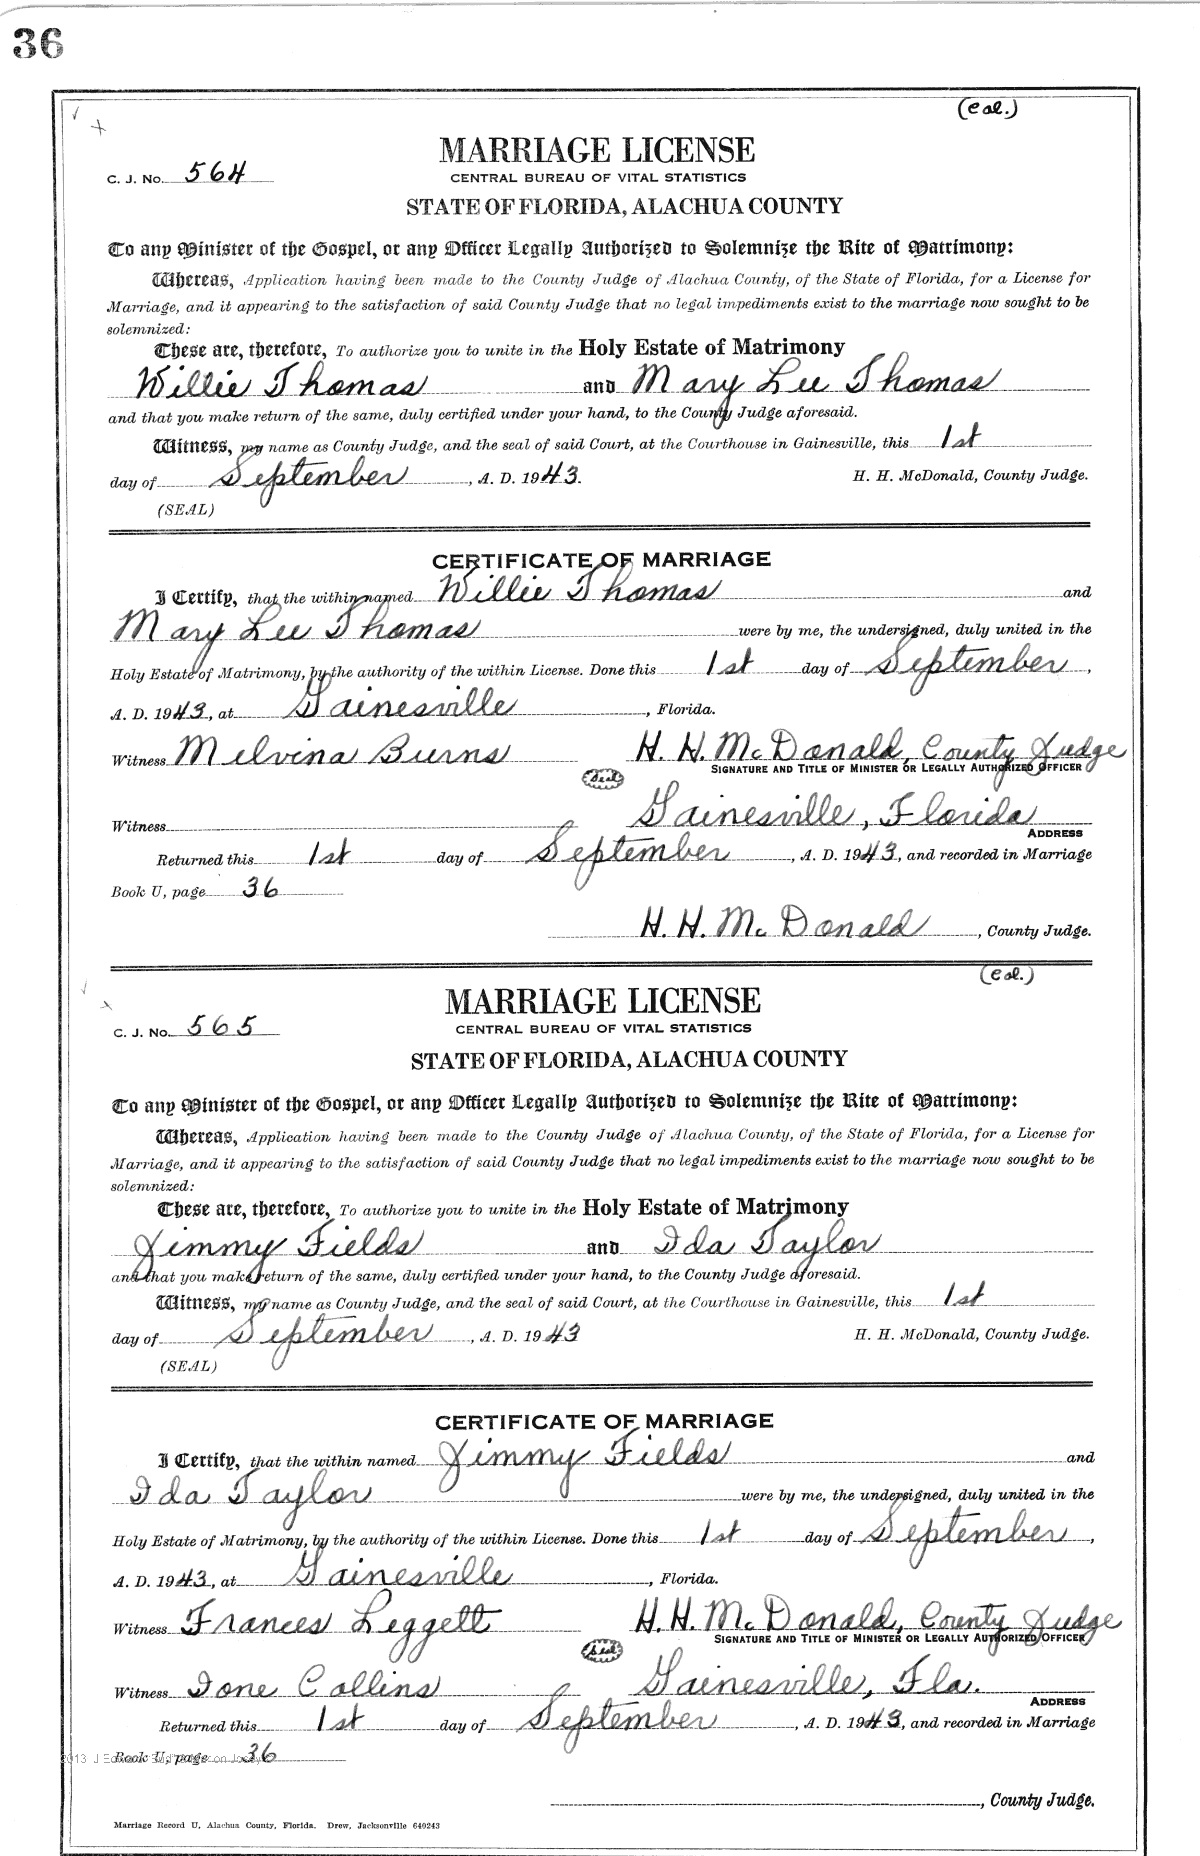 36
(Col.)
MARRIAGE LICENSE
C. J. No. 564
CENTRAL BUREAU OF VITAL STATISTICS
STATE OF FLORIDA, ALACHUA COUNTY
To any Minister of the Gospel, or any Officer Legally Authorized to Solemnize the Rite of Matrimony:
Whereas, Application having been made to the County Judge of Alachua County, of the State of Florida, for a License for
Marriage, and it appearing to the satisfaction of said County Judge that no legal impediments exist to the marriage now sought to be
solemnized:
These are, therefore, To authorize you to unite in the Holy Estate of Matrimony
Willie Thomas and Mary Lee Thomas
and that you make return of the same, duly certified under your hand, to the County Judge aforesaid.
Witness, my name as County Judge, and the seal of said Court, at the Courthouse in Gainesville, this 1st
day of September, A. D. 1943. H. H. McDonald, County Judge.
(SEAL)
CERTIFICATE OF MARRIAGE
I Certify, that the within named Willie Thomas and
Mary Lee Thomas were by me, the undersigned, duly united in the
Holy Estate of Matrimony, by the authority of the within License. Done this 1st day of September,
A. D. 1943, at Gainesville, Florida.
Witness Melvina Burns H. H. McDonald, County Judge
Seal SIGNATURE AND TITLE OF MINISTER OR LEGALLY AUTHORIZED OFFICER
Witness Gainesville, Florida
ADDRESS
Returned this 1st day of September, A. D. 1943, and recorded in Marriage
Book U, page 36
H. H. McDonald, County Judge.
(Col.)
MARRIAGE LICENSE
C. J. No. 565
CENTRAL BUREAU OF VITAL STATISTICS
STATE OF FLORIDA, ALACHUA COUNTY
To any Minister of the Gospel, or any Officer Legally Authorized to Solemnize the Rite of Matrimony:
Whereas, Application having been made to the County Judge of Alachua County, of the State of Florida, for a License for
Marriage, and it appearing to the satisfaction of said County Judge that no legal impediments exist to the marriage now sought to be
solemnized:
These are, therefore, To authorize you to unite in the Holy Estate of Matrimony
Jimmy Fields and Ida Taylor
and that you make return of the same, duly certified under your hand, to the County Judge aforesaid.
Witness, my name as County Judge, and the seal of said Court, at the Courthouse in Gainesville, this 1st
day of September, A. D. 1943 H. H. McDonald, County Judge.
(SEAL)
CERTIFICATE OF MARRIAGE
I Certify, that the within named Jimmy Fields and
Ida Taylor were by me, the undersigned, duly united in the
Holy Estate of Matrimony, by the authority of the within License. Done this 1st day of September,
A. D. 1943, at Gainesville, Florida.
Witness Frances Leggett H. H. McDonald, County Judge
Seal SIGNATURE AND TITLE OF MINISTER OR LEGALLY AUTHORIZED OFFICER
Witness Ione Collins Gainesville, Fla.
ADDRESS
Returned this 1st day of September, A. D. 1943, and recorded in Marriage
Book U, page 36
, County Judge.
Marriage Record U, Alachua County, Florida. Drew, Jacksonville 640243